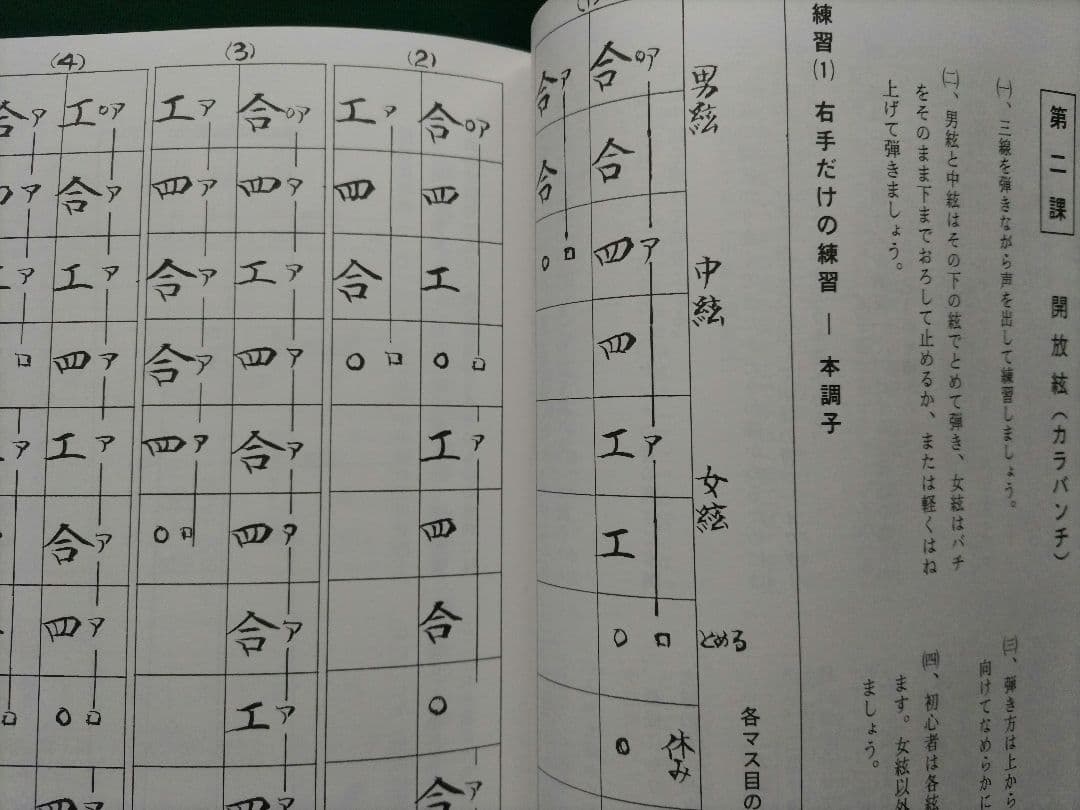 第二課　開放絃（カラバンチ）
㈠、三線を弾きながら声を出して練習しましょう。
㈡、男絃と中絃はその下の絃でとめて弾き、女絃はバチ
をそのまま下までおろして止めるか、または軽くはね
上げて弾きましょう。
㈢、弾き方は上から
向けてなめらかに
㈣、初心者は各絃
ます。女絃以外
ましょう。
練習⑴　右手だけの練習 — 本調子
各マス目の
男絃　中絃　女絃　とめる　休み
合 合 四 四 工 工 ○ ○
ア ア ア ロ
合 合 ○
ア ロ
(2)
合 四 工 ○ 工 四 合 ○ 合
ア ロ ア ア
工 四 合 ○
ア ロ
(3)
合 四 工 四 合 四 合 工 四
ア ア ア ア ア ア ア ア ア
工 四 合 合 四 ○
ア ア ア ア ア ロ
(4)
工 合 工 四 工 合 四 ○ 四
ア ア ア ア ア ア ア ロ ア
合
ア ア ア ロ ア ロ